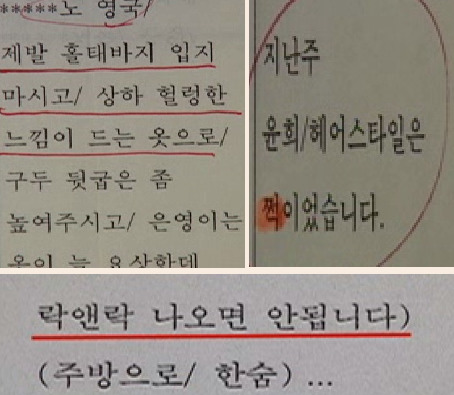 *****노 영국/
제발 홀태바지 입지
마시고/ 상하 헐렁한
느낌이 드는 옷으로/
구두 뒷굽은 좀
높여주시고/ 은영이는
옷이 늘
지난주
윤희/헤어스타일은
쩍이었습니다.
락앤락 나오면 안됩니다)
(주방으로/ 한숨) ...